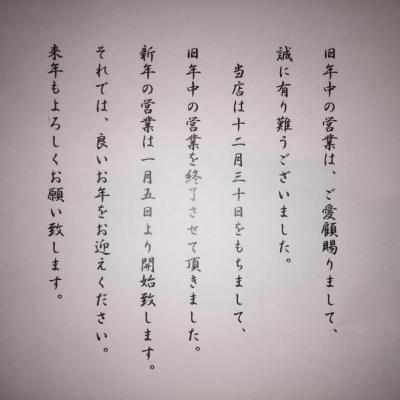 旧年中の営業は、ご愛顧賜りまして、
誠に有り難うございました。
当店は十二月三十日をもちまして、
旧年中の営業を終了させて頂きました。
新年の営業は一月五日より開始致します。
それでは、良いお年をお迎えください。
来年もよろしくお願い致します。